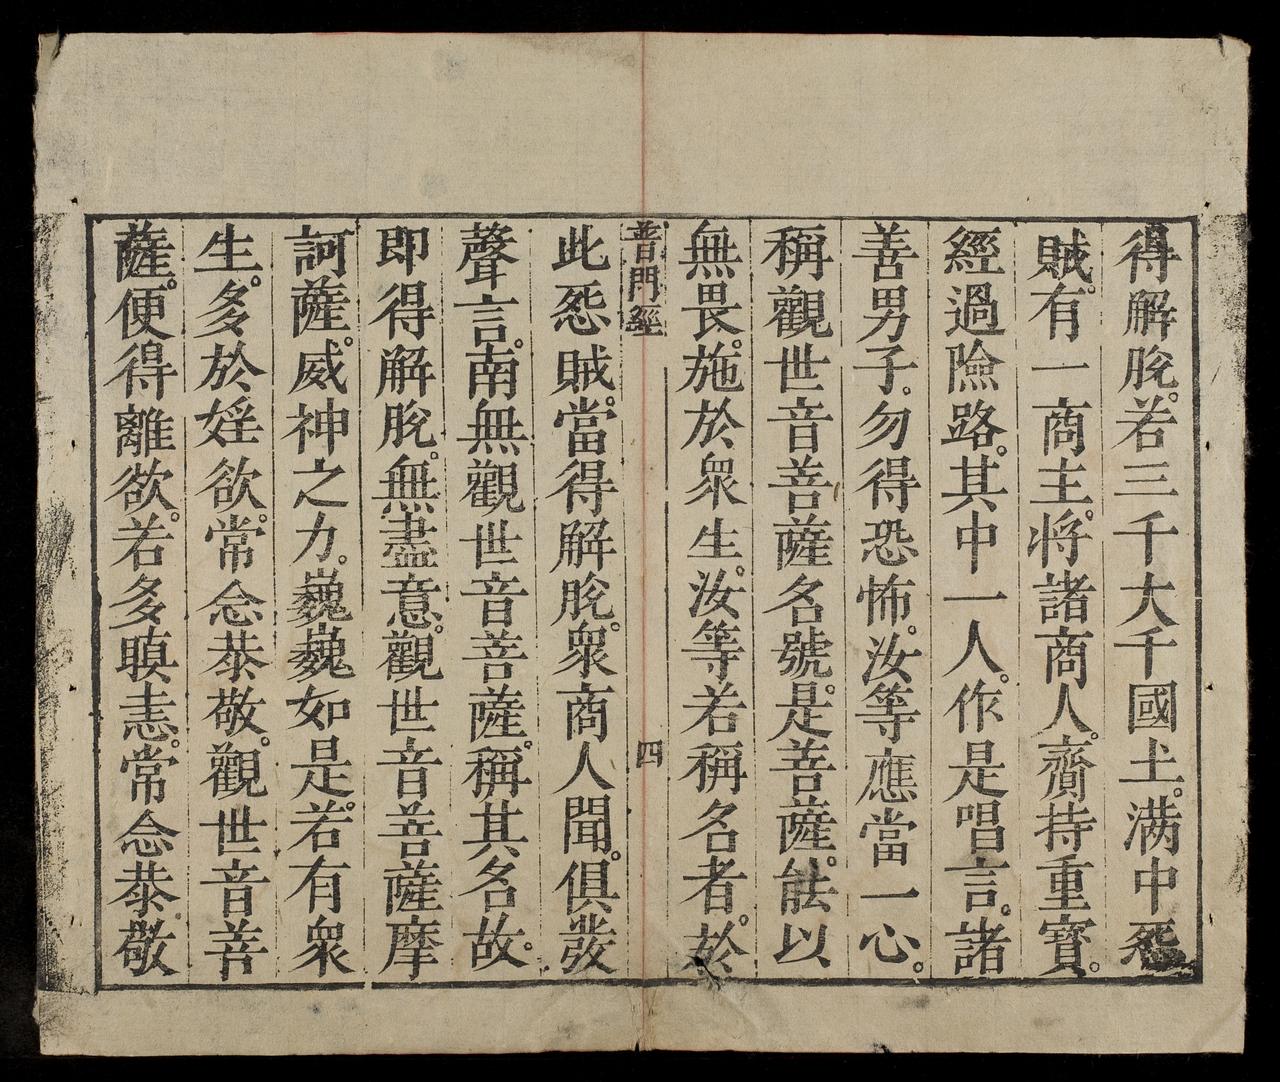 得解脫。若三千大千國土。滿中怨
賊。有一商主。將諸商人。齎持重寶。
經過險路。其中一人。作是唱言。諸
善男子。勿得恐怖。汝等應當一心。
稱觀世音菩薩名號。是菩薩。能以
無畏。施於衆生。汝等若稱名者。於
普門經
四
此怨賊。當得解脫。衆商人聞。俱發
聲言。南無觀世音菩薩。稱其名故。
即得解脫。無盡意。觀世音菩薩摩
訶薩。威神之力。巍巍如是。若有衆
生。多於婬欲。常念恭敬。觀世音菩
薩。便得離欲。若多瞋恚。常念恭敬